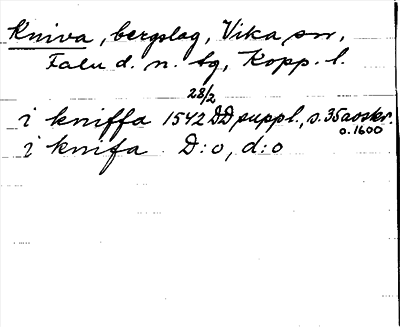 Kniva, bergslag, Vika sn,
Falu d. n. tg, Kopp. l.
28/2
i kniffa 1542 DD suppl., s. 35 avskr.
o. 1600
i knifa D:o, d:o